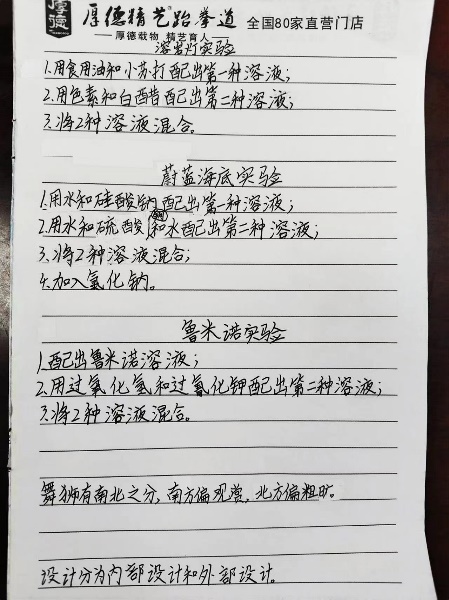 厚德
厚德精艺跆拳道 全国80家直营门店
厚德载物 精艺育人
溶岩灯实验
1.用食用油和小苏打配出第一种溶液;
2.用色素和白醋配出第二种溶液;
3.将2种溶液混合。
蔚蓝海底实验
1.用水和硅酸钠配出第一种溶液;
2.用水和硫酸铜和水配出第二种溶液;
3.将2种溶液混合;
4.加入氯化钠。
鲁米诺实验
1.配出鲁米诺溶液;
2.用过氧化氢和过氧化钾配出第二种溶液;
3.将2种溶液混合。
舞狮有南北之分,南方偏观赏,北方偏粗旷。
设计分为内部设计和外部设计。